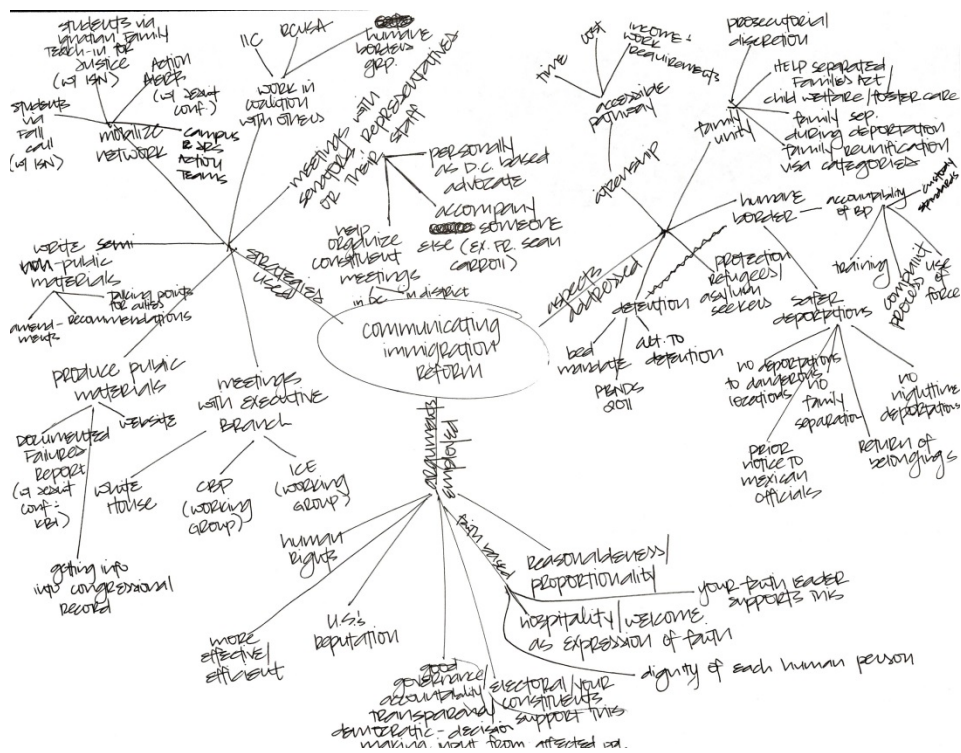 students via
Ignatian Family
Teach-in for
Justice
(w/ ISN)
Action
Alerts
(w/ Jesuit
conf.)
students
via
Fall
call
(w/ ISN)
mobilize
network
campus
Action
Teams
IIC
RCUSA
humane
borders
grp.
work in
coalition
with others
meetings with
senators/representatives
OR their staff
personally
as D.C. based
advocate
accompany
someone
else (ex. Fr. Sean
Carroll)
help
organize
constituent
meetings
in DC
in district
write semi
non-public
materials
talking points
for allies
amend-
ments
recommendations
strategies
used
produce public
materials
website
Documented
Failures
Report
(w/ Jesuit
conf.:
KBI)
getting info
into congressional
record
meetings
with executive
Branch
White
House
CBP
(working
group)
ICE
(working
group)
communicating
immigration
reform
aspects
addressed
time
cost
income &
work
requirements
accessible
pathway
citizenship
prosecutorial
discretion
HELP separated
Families Act
child welfare/foster care
family sep.
during deportation
family reunification
visa categories
family
unity
humane
border
accountability
of BP
custody
standards
training
complaint
process
use of
force
protection
refugees/
asylum
seekers
detention
bed
mandate
PBNDS
2011
alt. to
detention
safer
deportations
no deportations
to dangerous
locations
no
family
separation
no
nighttime
deportations
prior
notice to
mexican
officials
return of
belongings
arguments
employed
human
Rights
more
effective/
efficient
U.S.'s
reputation
good
governance/
accountability/
transparency/
democratic-decision
making input from affected pop.
electoral/your
constituents
support this
faith based
reasonableness/
proportionality
your faith leader
supports this
hospitality/welcome
as expression of faith
dignity of each human person